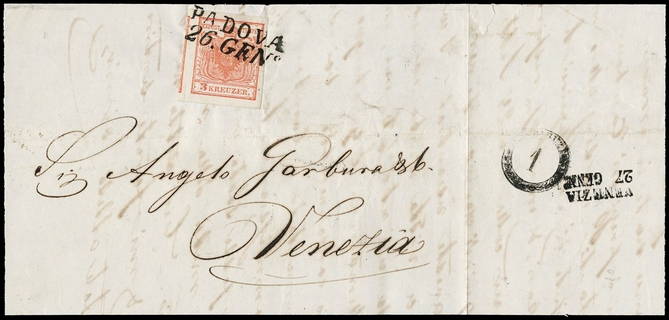 PADOVA
26. GENº
3 KREUZER.
Sig Angelo
Venezia
1
VENEZIA
27 GENN.